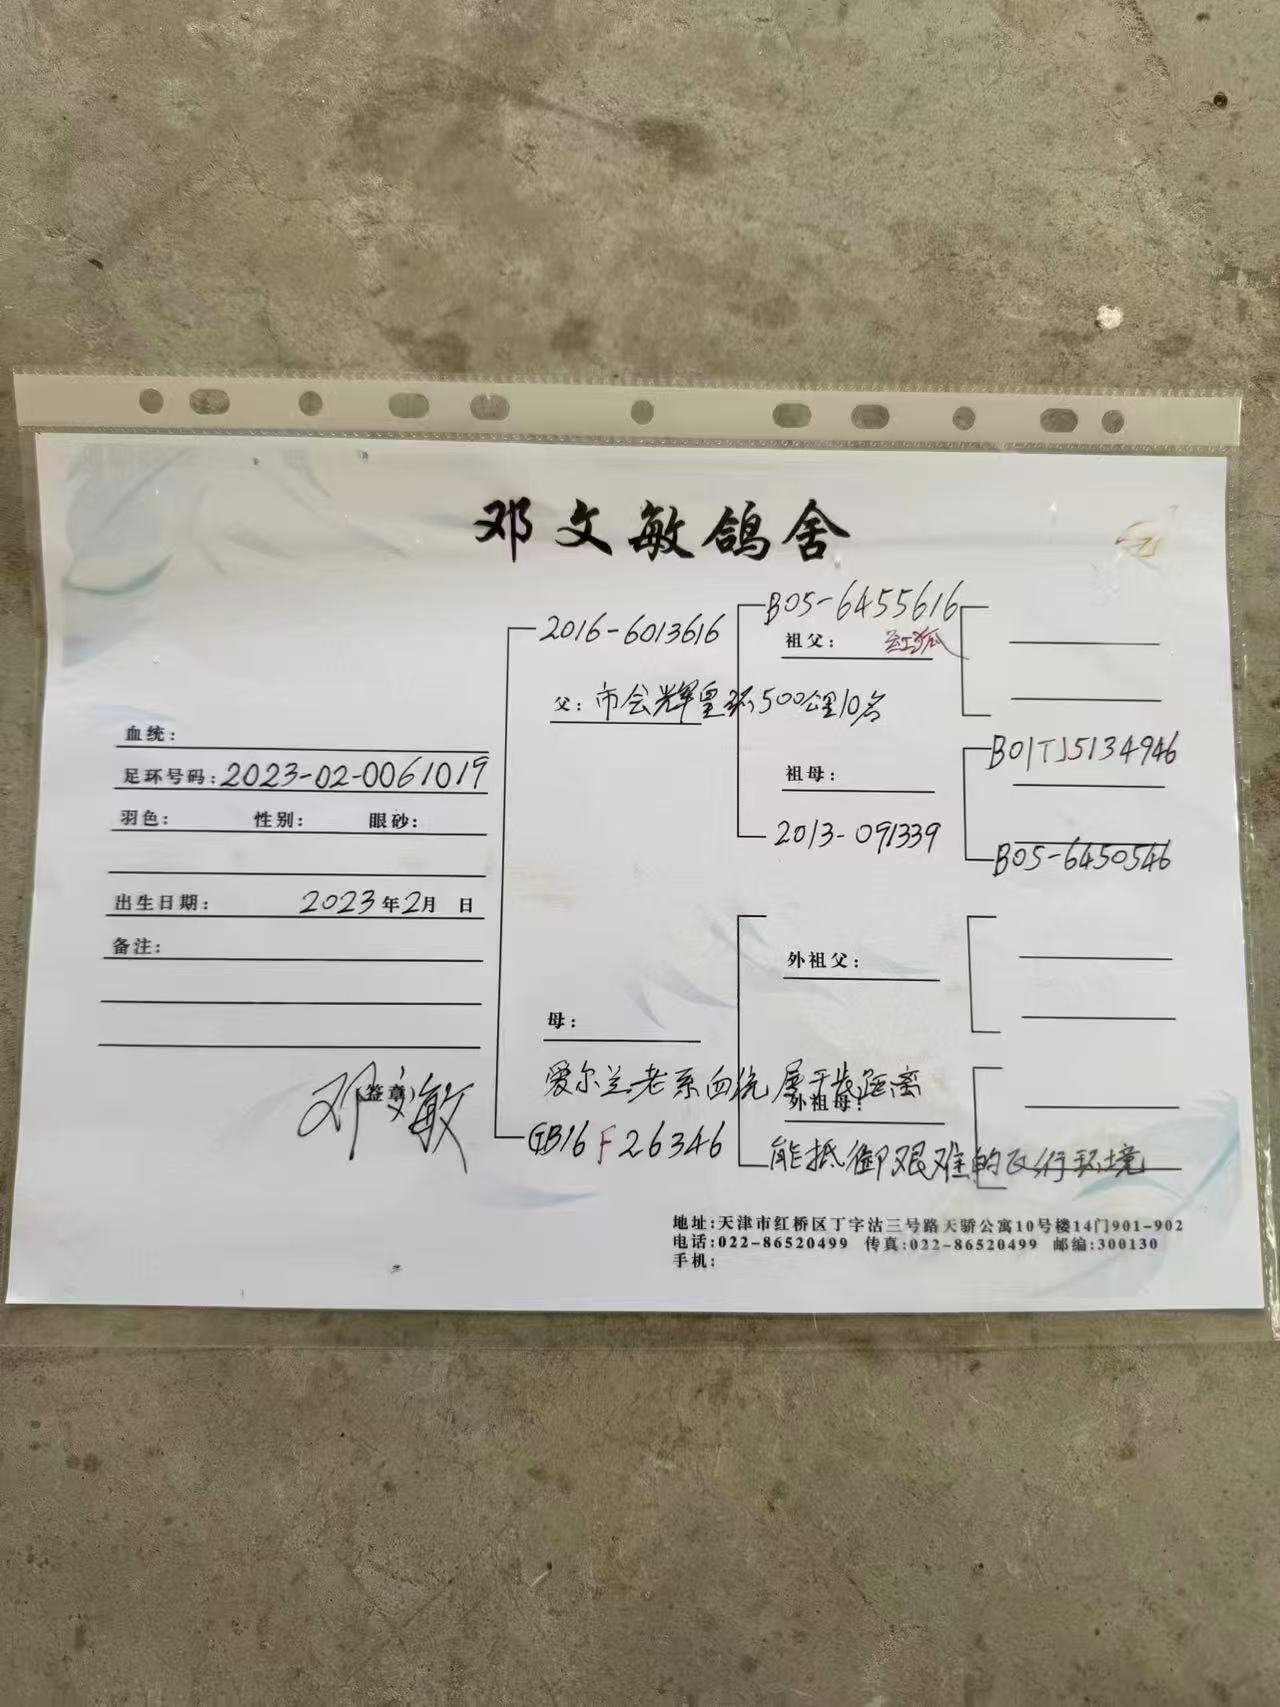 邓文敏鸽舍
血统:
足环号码:2023-02-0061019
羽色: 性别: 眼砂:
出生日期: 2023年2月 日
备注:
(签章)
邓文敏
2016-6013616
父: 市会辉皇环500公里10名
母:
爱尔兰老系血统 属于长距离
GB16 F 26346
B05-6455616
祖父: 红狐
祖母:
2013-091339
外祖父:
外祖母:
能抵御艰难的飞行环境
B01TJ5134946
B05-6450546
地址:天津市红桥区丁字沽三号路天骄公寓10号楼14门901-902
电话:022-86520499 传真:022-86520499 邮编:300130
手机: